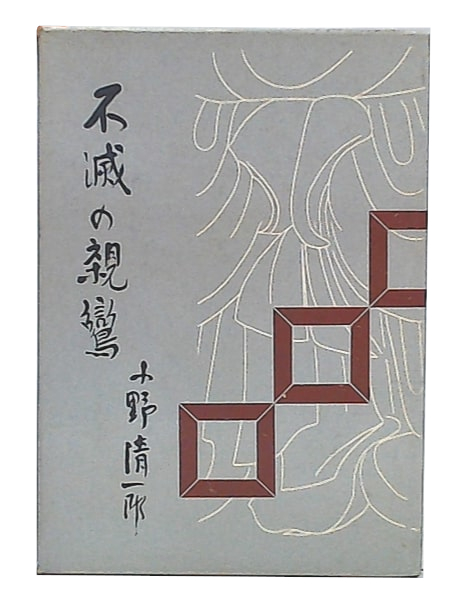 不滅の親鸞
小野清一郎